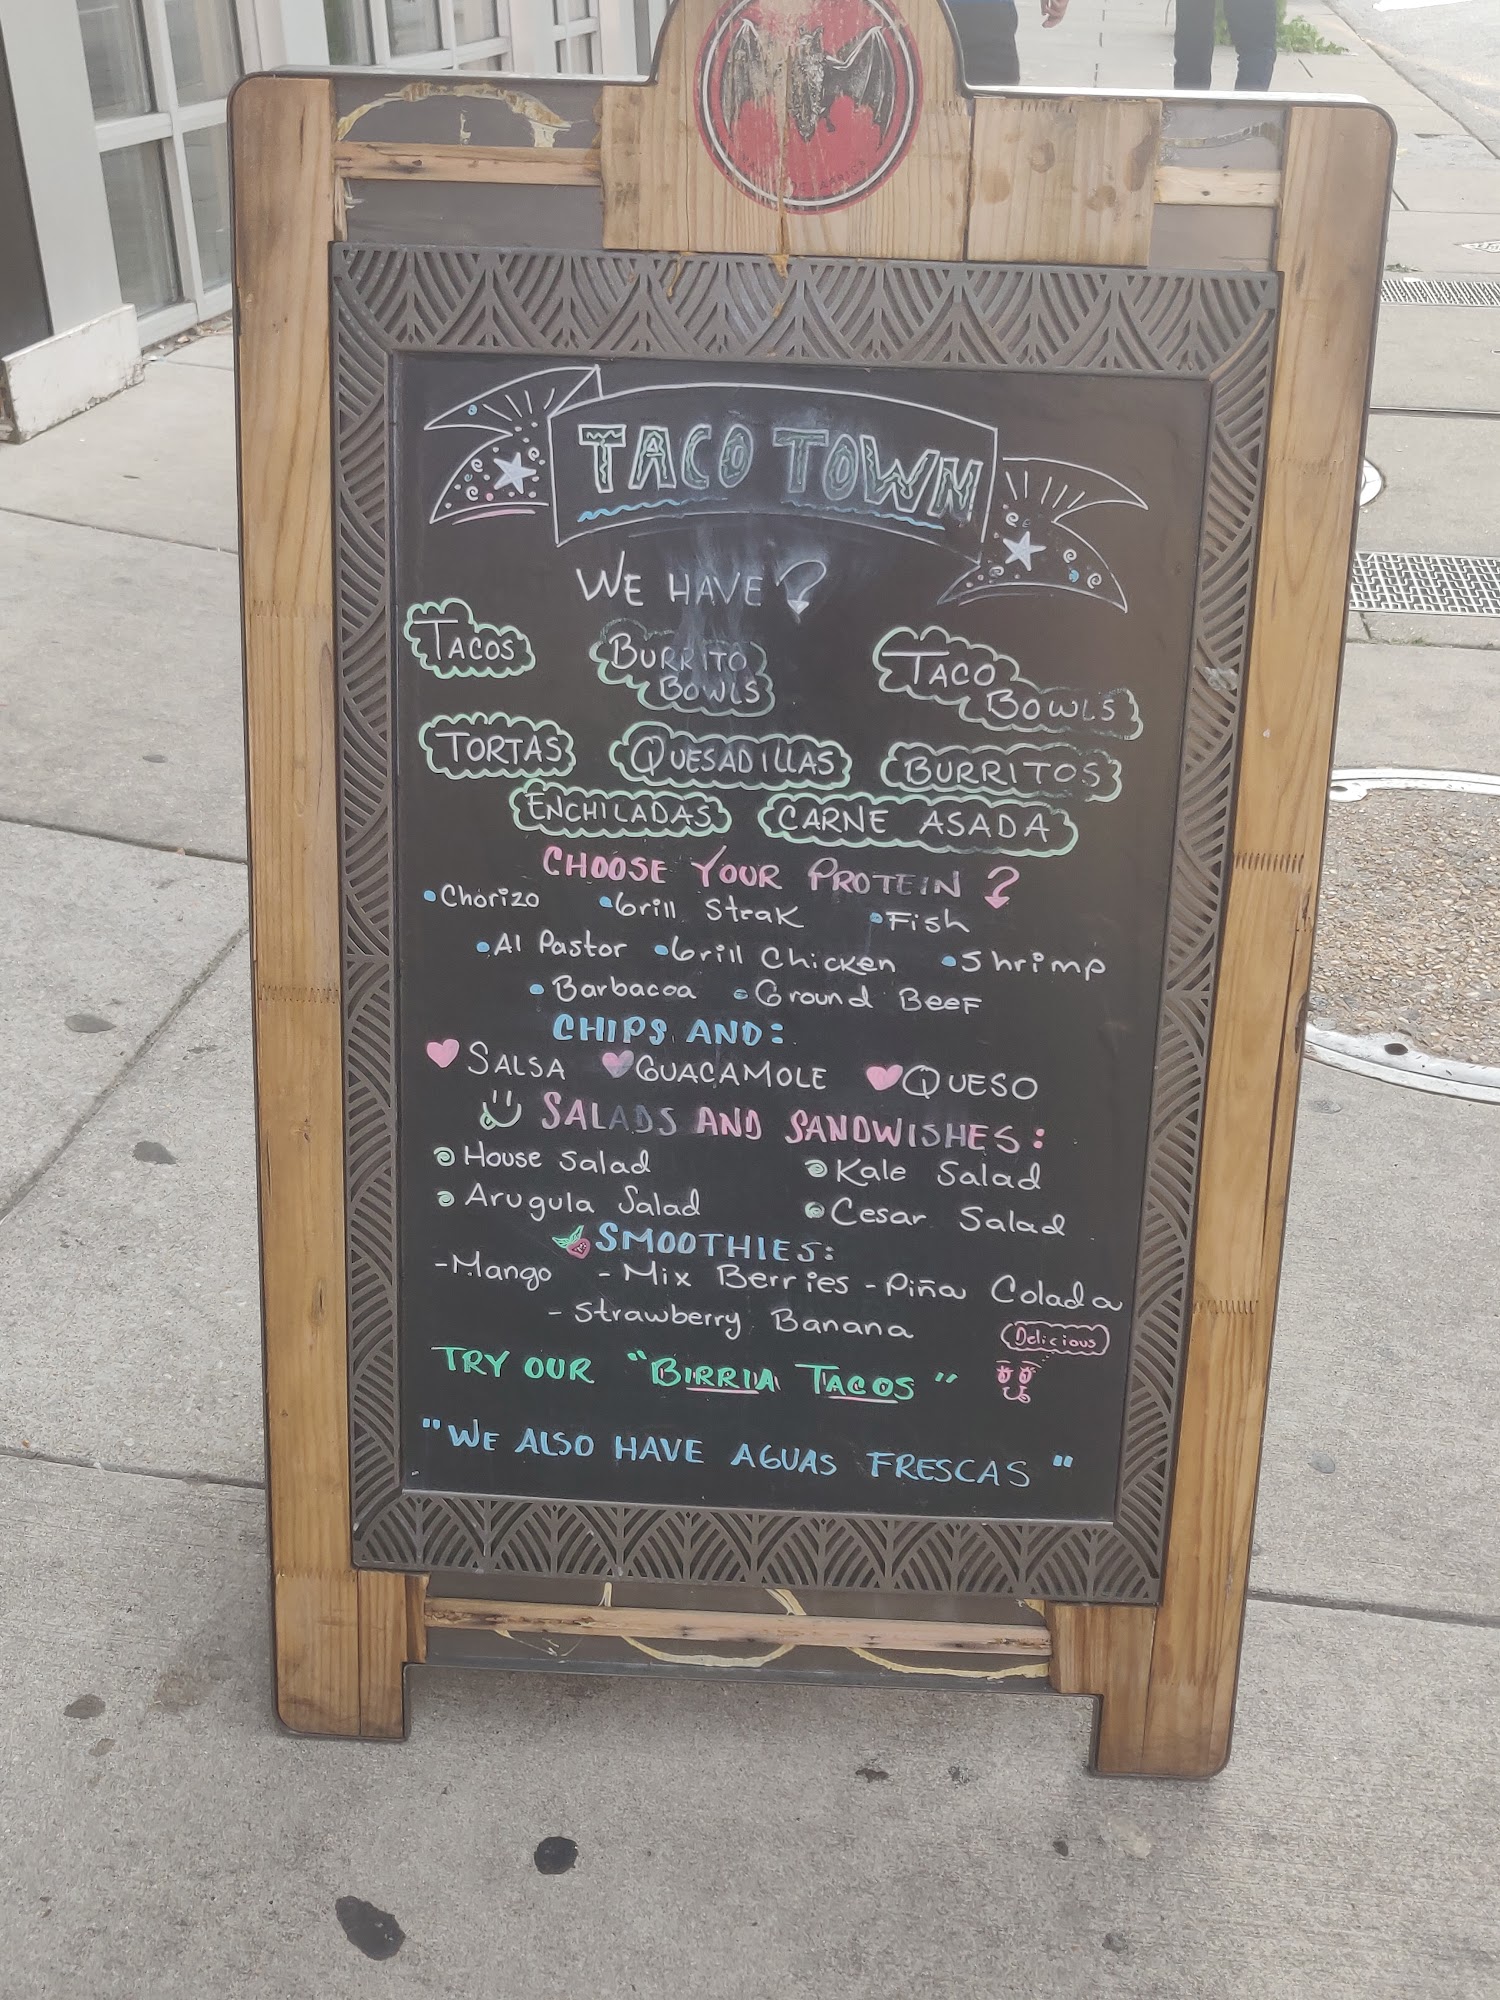 TACO TOWN
WE HAVE
TACOS BURRITO BOWLS TACO BOWLS
TORTAS QUESADILLAS BURRITOS
ENCHILADAS CARNE ASADA
CHOOSE YOUR PROTEIN
• Chorizo • Grill Steak • Fish
• Al Pastor • Grill Chicken • Shrimp
• Barbacoa • Ground Beef
CHIPS AND:
SALSA GUACAMOLE QUESO
SALADS AND SANDWISHES:
House Salad Kale Salad
Arugula Salad Cesar Salad
SMOOTHIES:
- Mango - Mix Berries - Piña Colada
- Strawberry Banana
Delicious
TRY OUR "BIRRIA TACOS"
"WE ALSO HAVE AGUAS FRESCAS"